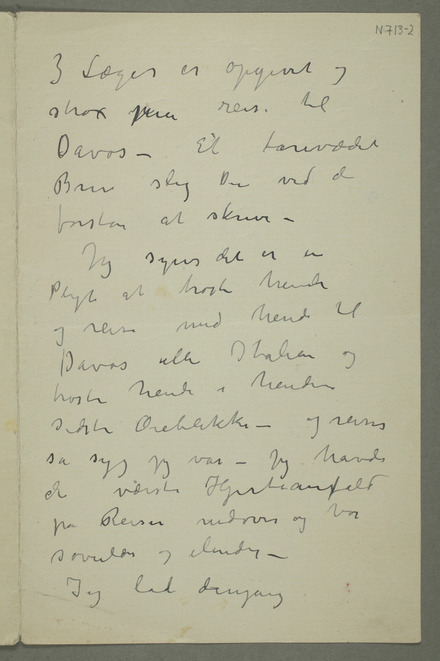 N 713-2
3 Læger er opgivet og
strax maa reise til
Davos – Et tarevædet
Brev slig Du ved de
forstaa at skrive –
Jeg synes det er en
Pligt at trøste hende
og reise med hende til
Davos eller Italien og
trøste hende i hendes
sidste Øieblikke – og reiser
så syg jeg var – Jeg havde
de værste Hjerteanfald
på Reisen nedover og var
søvnløs og elendig –
Jeg lod dengang